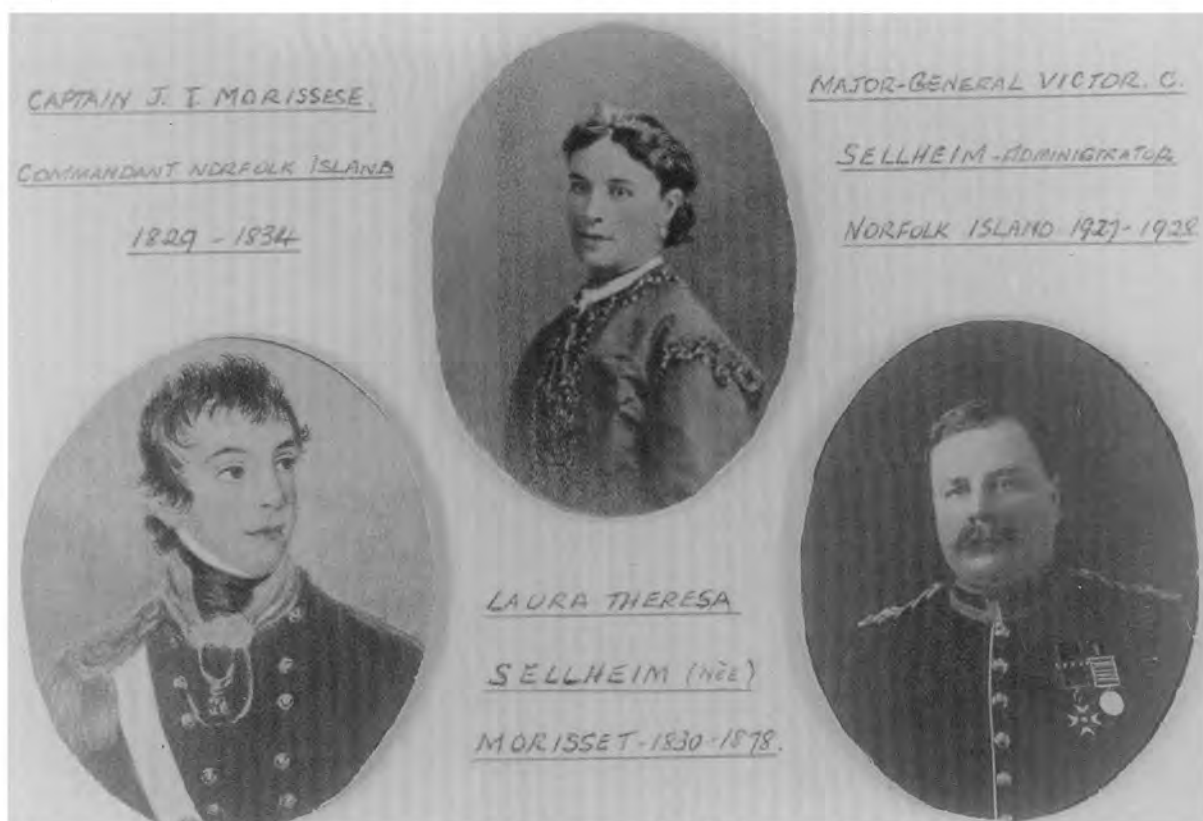 CAPTAIN J. T. MORISSESE.
COMMANDANT NORFOLK ISLAND
1829 - 1834
MAJOR-GENERAL VICTOR. C.
SELLHEIM - ADMINISTRATOR
NORFOLK ISLAND 1927 - 1928
LAURA THERESA
SELLHEIM (NÈE)
MORISSET - 1830 - 1878.